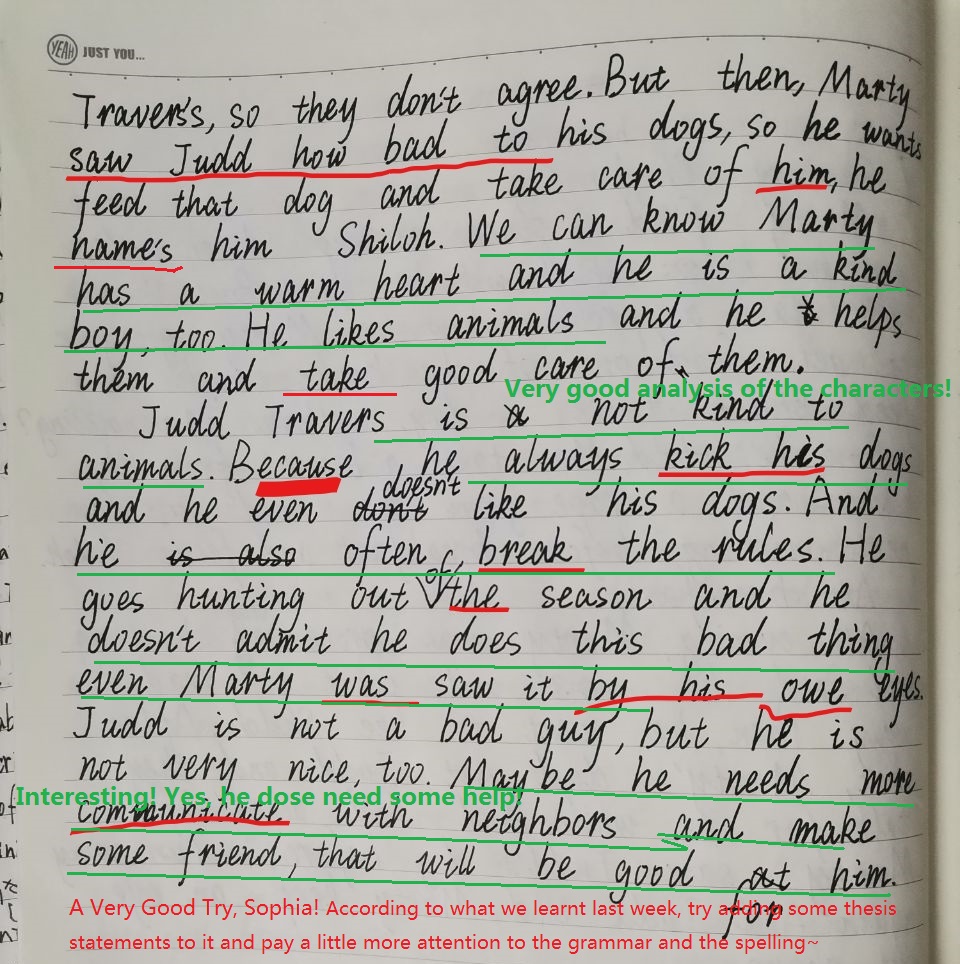 YEAH JUST YOU...
Traver's, so they don't agree. But then, Marty
saw Judd how bad to his dogs, so he wants
feed that dog and take care of him, he
name's him Shiloh. We can know Marty
has a warm heart and he is a kind
boy, too. He likes animals and he helps
them and take good care of them.
Very good analysis of the characters!
Judd Travers is not kind to
animals. Because he always kick his dogs
doesn't
and he even don't like his dogs. And
he is also often break the rules. He
of
goes hunting out the season and he
doesn't admit he does this bad thing
even Marty was saw it by his owe eyes.
Judd is not a bad guy, but he is
not very nice, too. Maybe he needs more
Interesting! Yes, he dose need some help!
communitate with neighbors and make
some friend, that will be good at him.
for
A Very Good Try, Sophia! According to what we learnt last week, try adding some thesis
statements to it and pay a little more attention to the grammar and the spelling~